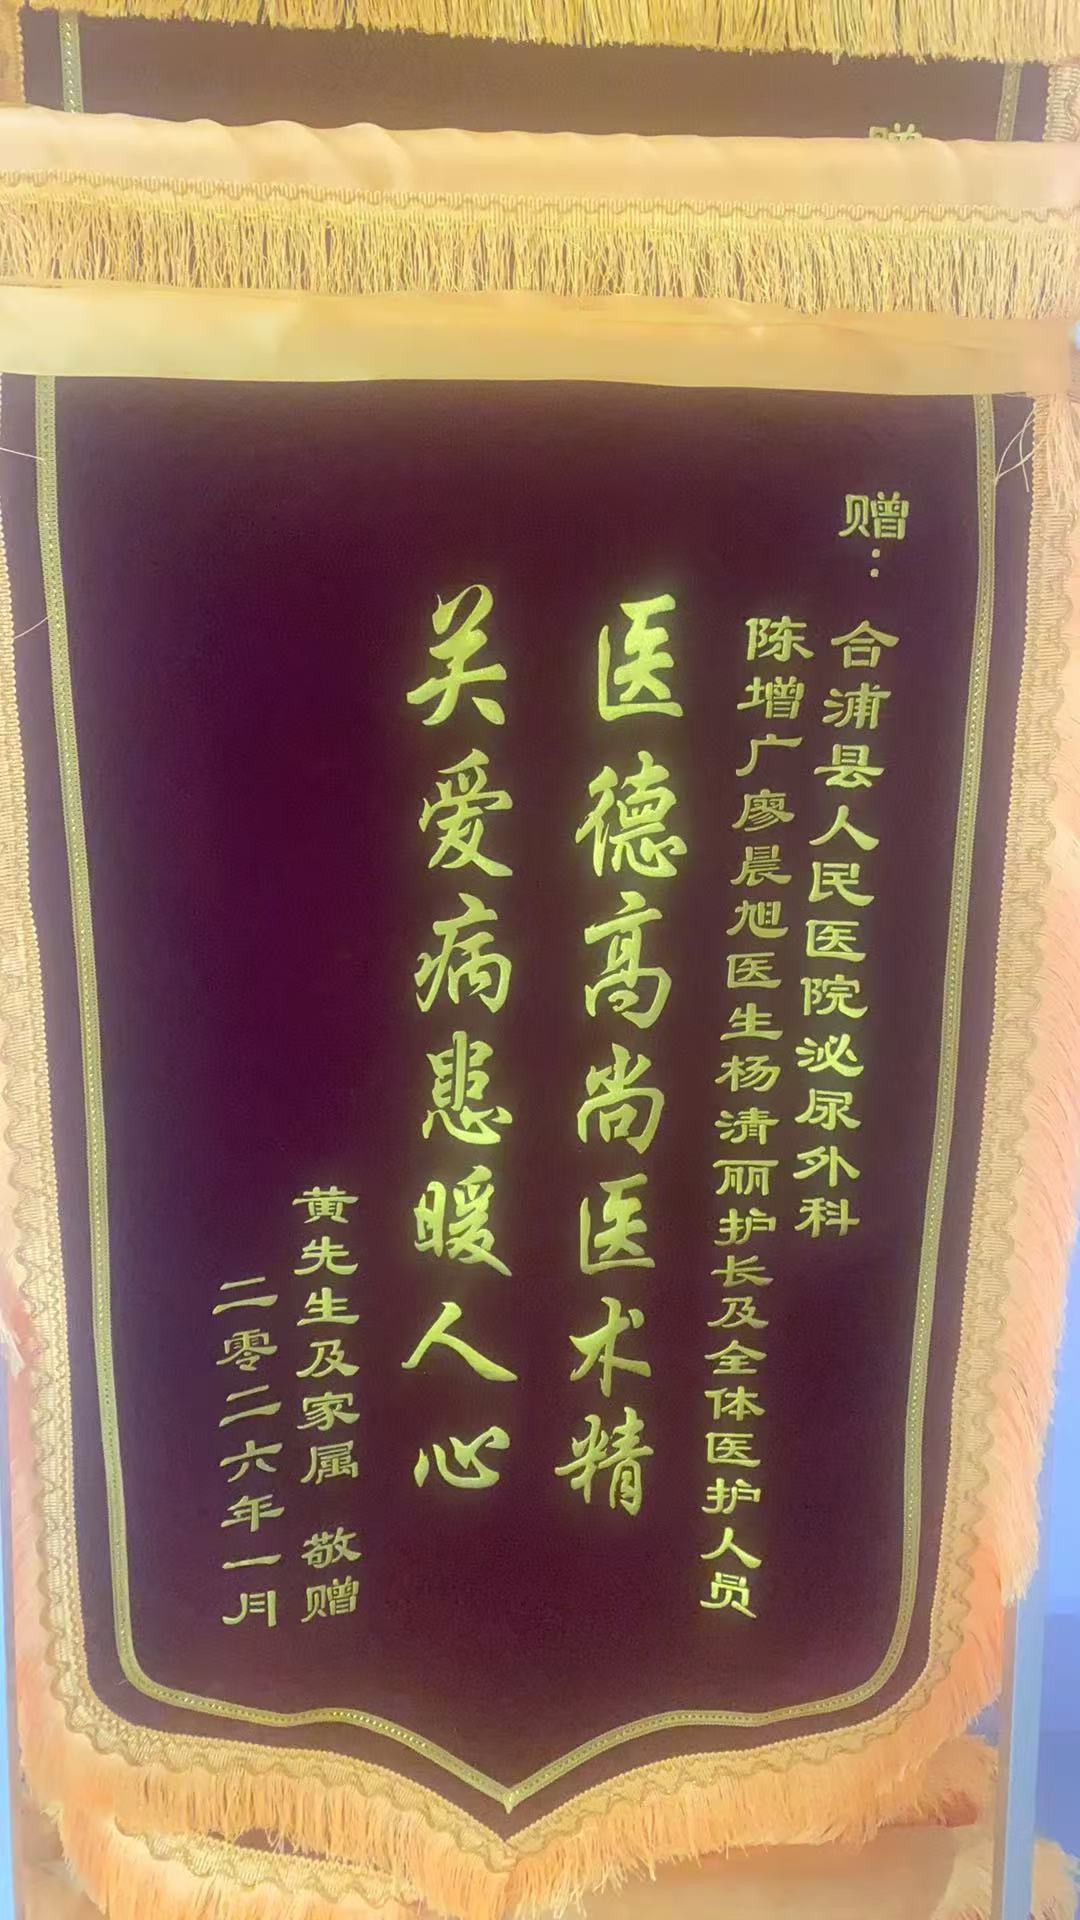 赠
赠：
合浦县人民医院泌尿外科
陈增广廖晨旭医生杨清丽护长及全体医护人员
医德高尚医术精
关爱病患暖人心
黄先生及家属 敬赠
二零二六年一月